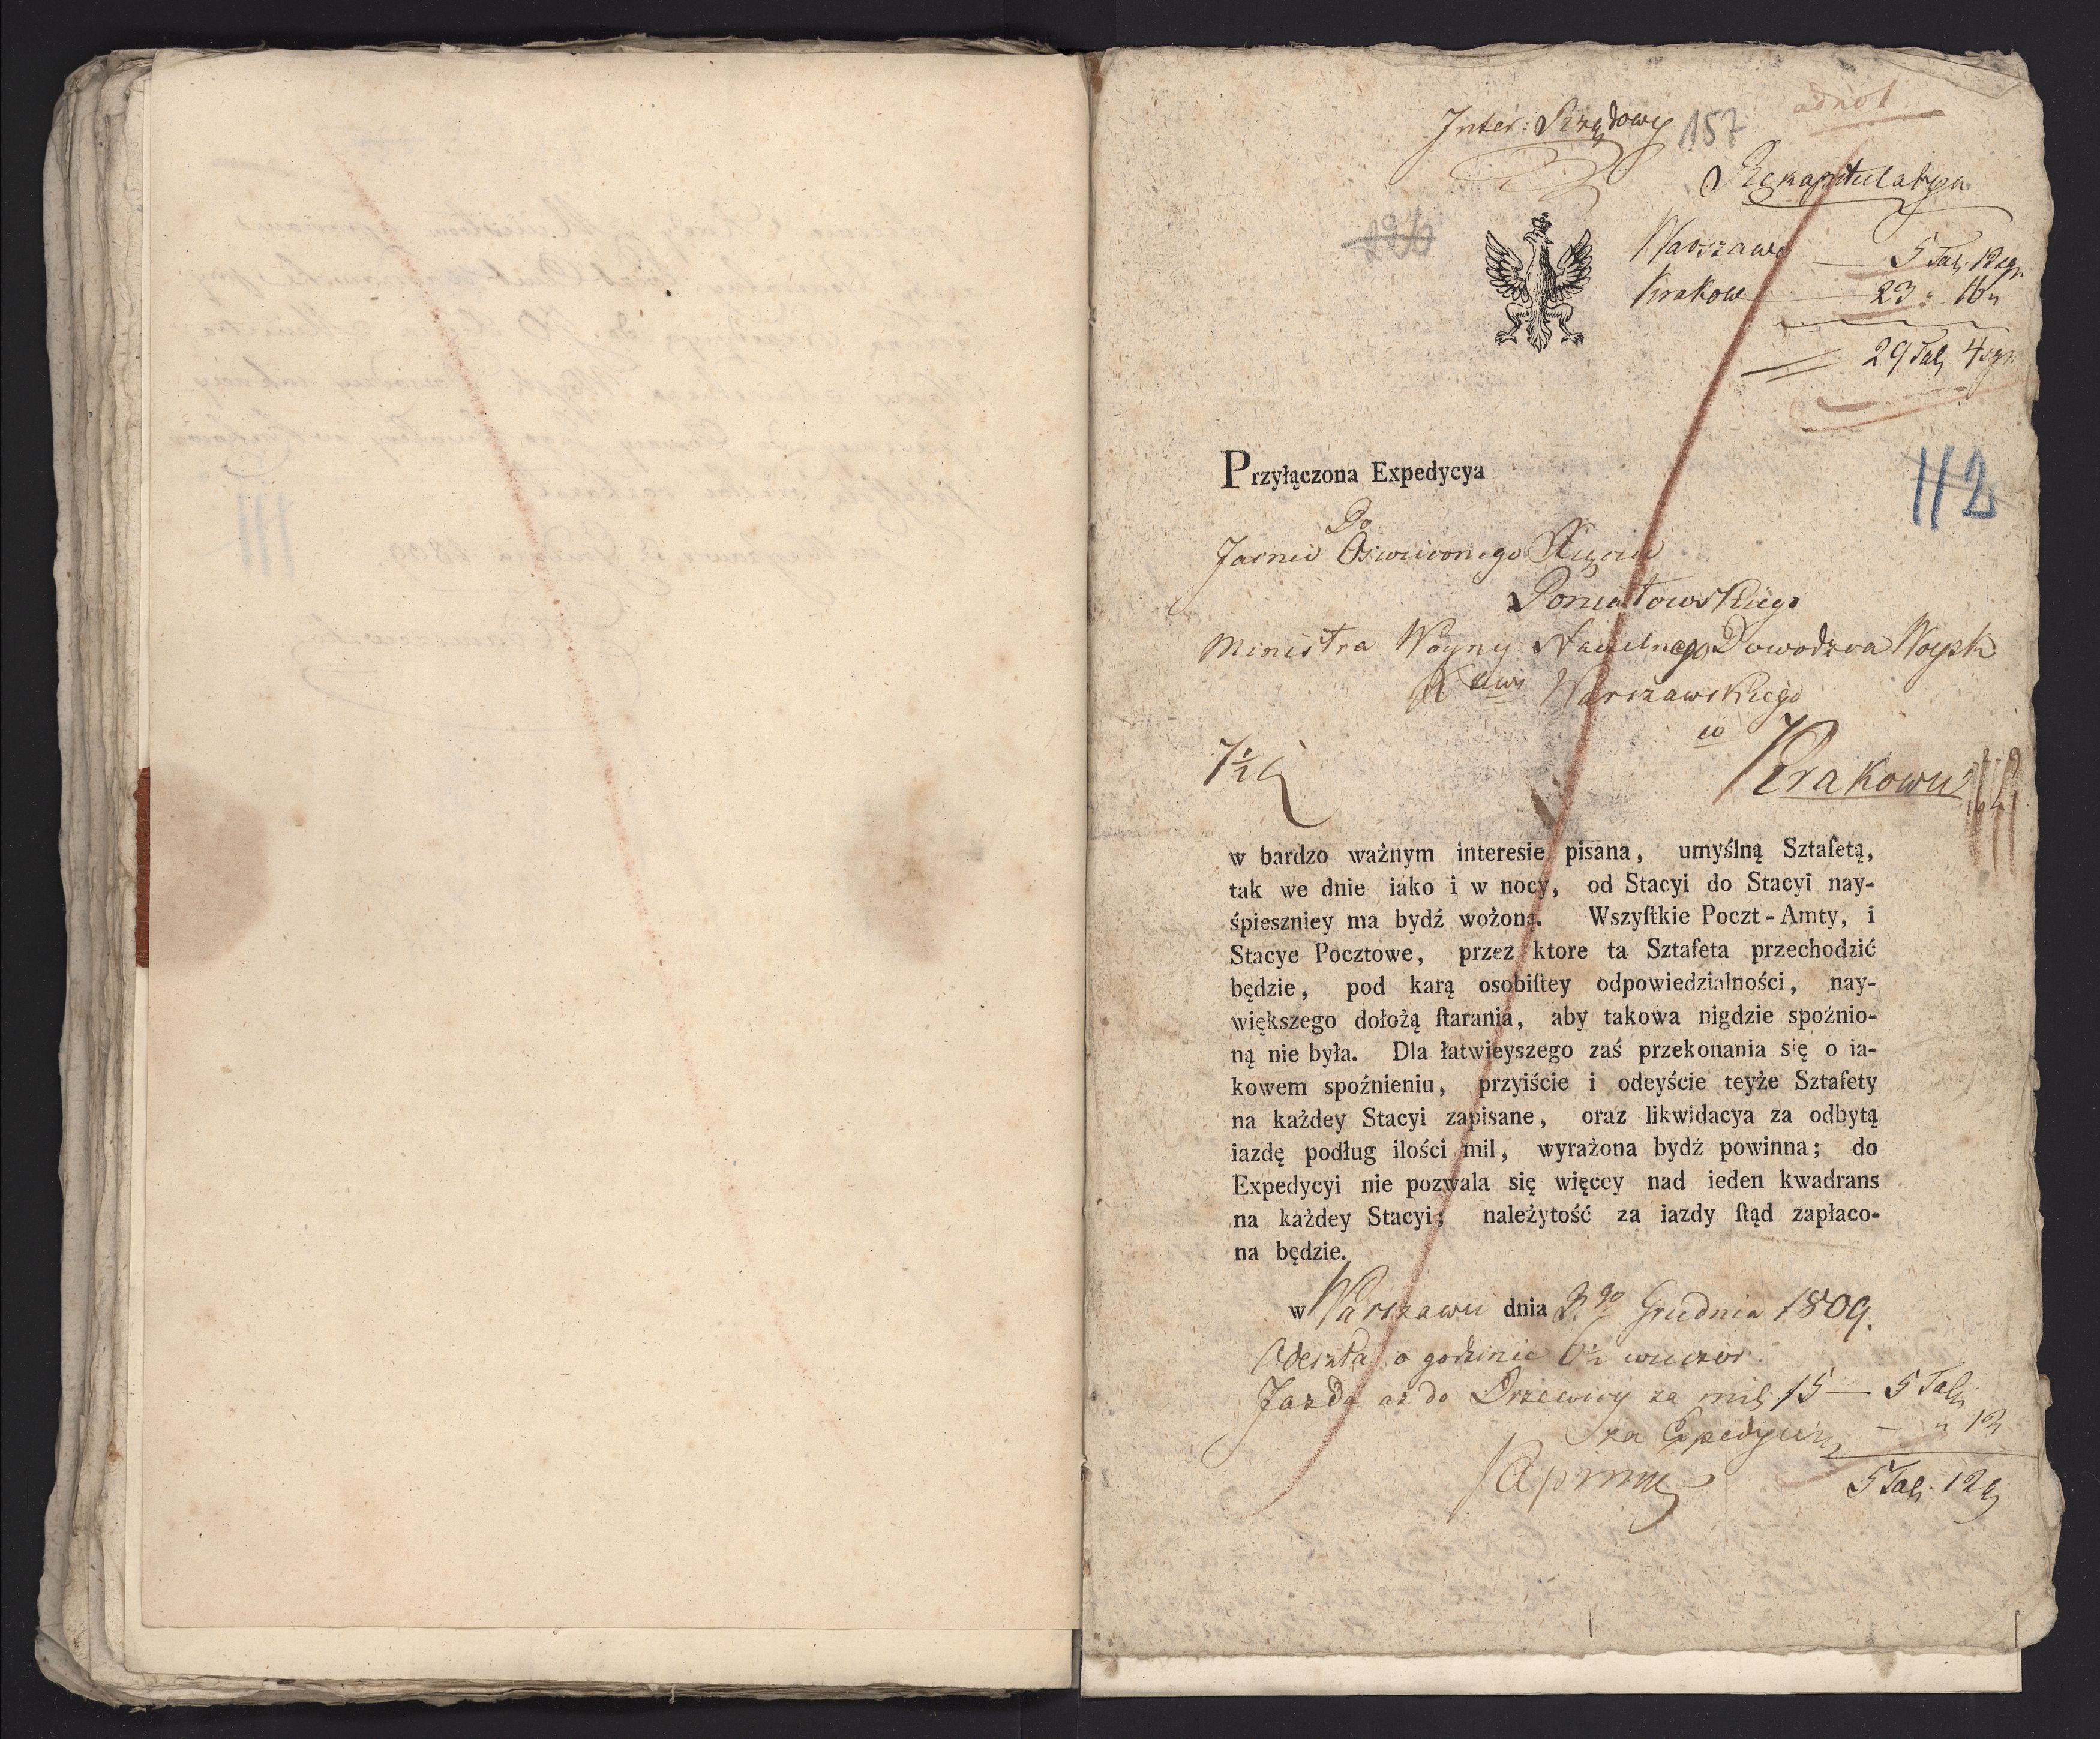 adnot
Inter: Rządowy 157
Rekapitulatya
236
Warszawa — 5 Tal. 12 gr.
Krakow — 23 " 16 "
29 Tal 4 gr.
Przyłączona Expedycya
112
Do
Jasnie Oswieconego Xięcia
Poniatowskiego
Ministra Woyny Naczelnego Dowodzca Woysk
Xtwa Warszawskiego
w
7½
Krakowie
w bardzo ważnym interesie pisana, umyślną Sztafetą,
tak we dnie iako i w nocy, od Stacyi do Stacyi nay-
śpieszniey ma bydź wożona. Wszyſtkie Poczt-Amty, i
Stacye Pocztowe, przez ktore ta Sztafeta przechodzić
będzie, pod karą osobiſtey odpowiedzialności, nay-
większego dołożą ſtarania, aby takowa nigdzie spoźnio-
ną nie była. Dla łatwieyszego zaś przekonania się o ia-
kowem spoźnieniu, przyiście i odeyście teyże Sztafety
na każdey Stacyi zapisane, oraz likwidacya za odbytą
iazdę podług ilości mil, wyrażona bydź powinna; do
Expedycyi nie pozwala się więcey nad ieden kwadrans
na każdey Stacyi; należytość za iazdy ſtąd zapłaco-
na będzie.
w Warszawie dnia go Grudnia 1809.
Odeszła o godzinie 6½ wieczor.
Jazda aż do Drzewicy za mil 15 — 5 Tal
za Expedycią — " 12
5 Tal. 12 g
111